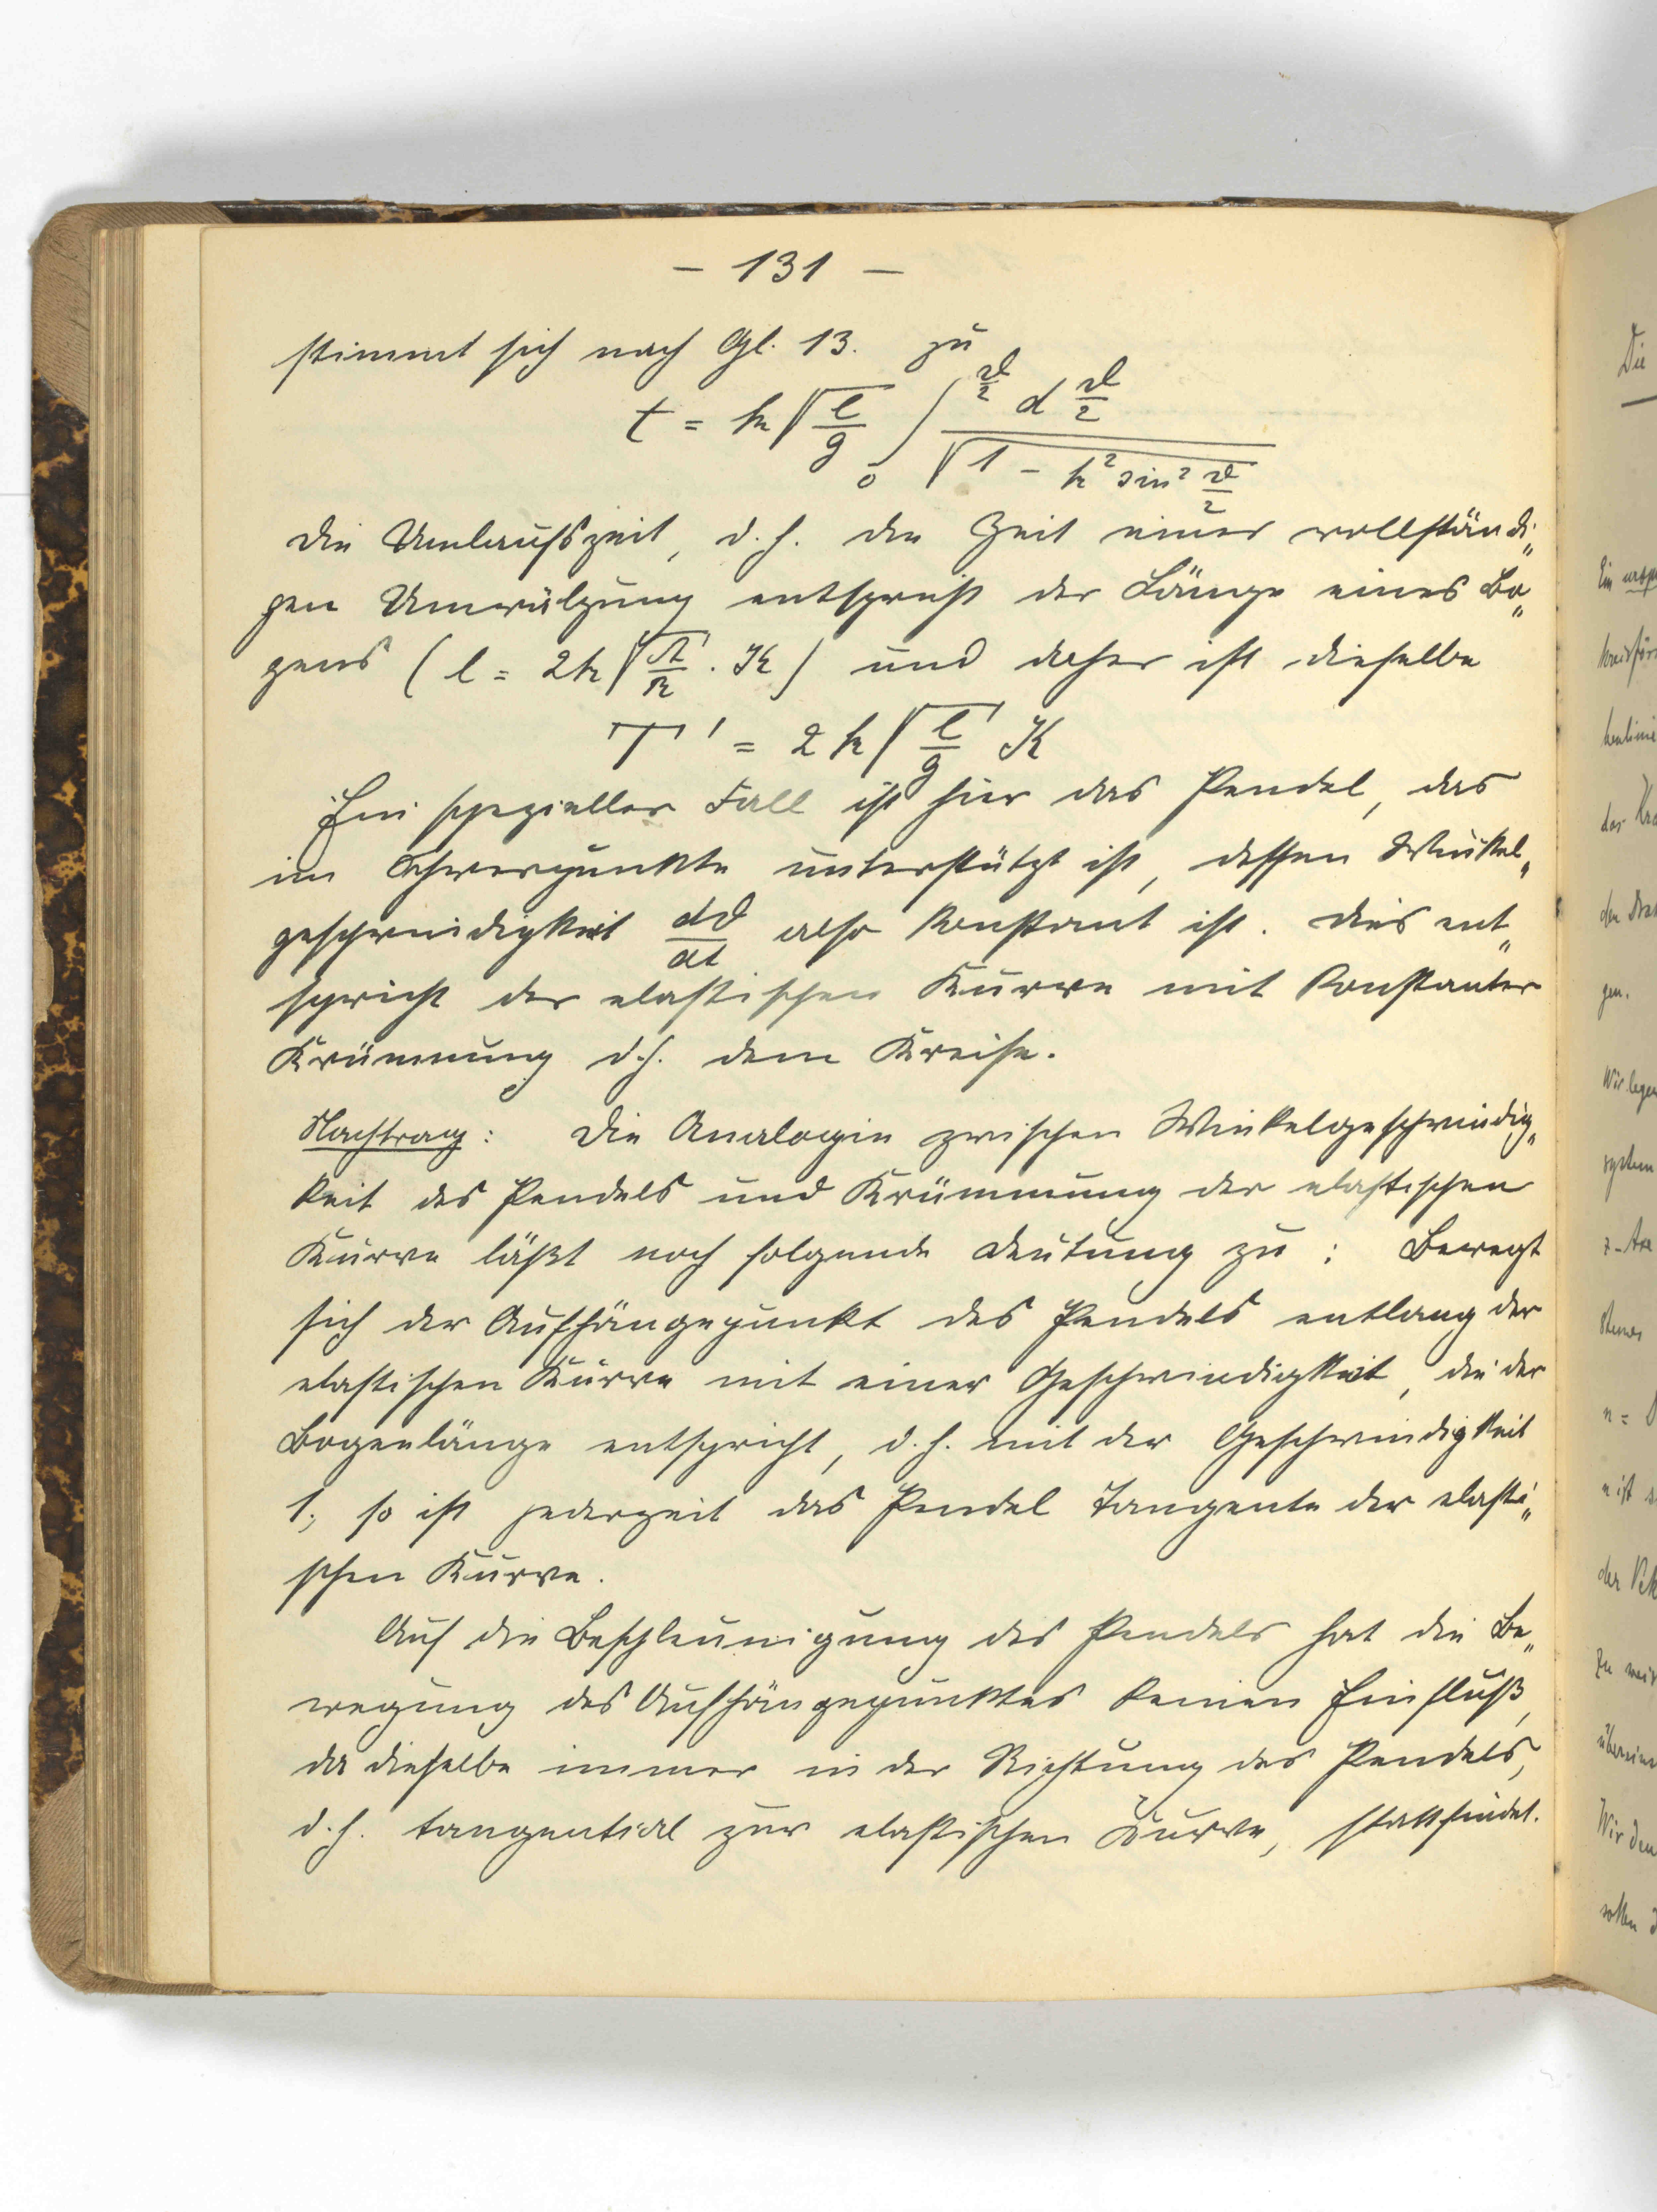 – 131 –
stimmt sich nach Gl. 13. zu
t = k √(l/g) ∫₀^(ϑ/2) d ϑ/2 / √(1 – k² sin² ϑ/2)
Die Umlaufszeit, d. h. die Zeit einer vollständi„
gen Umwälzung entspricht der Länge eines Bo„
gens ( l = 2k √(A/R) · K ) und daher ist dieselbe
T' = 2 k √(l/g) K
Ein spezieller Fall ist hier das Pendel, das
im Schwerpunkte unterstützt ist, dessen Winkel„
geschwindigkeit dϑ/dt also konstant ist. Dies ent„
spricht der elastischen Kurve mit konstanter
Krümmung d.h. dem Kreise.
Nachtrag: Die Analogie zwischen Winkelgeschwindig„
keit des Pendels und Krümmung der elastischen
Kurve läßt noch folgende Deutung zu : Bewegt
sich der Aufhängepunkt des Pendels entlang der
elastischen Kurve mit einer Geschwindigkeit, die der
Bogenlänge entspricht, d. h. mit der Geschwindigkeit
1, so ist jederzeit das Pendel Tangente der elasti„
schen Kurve.
Auf die Beschleunigung des Pendels hat die Be„
wegung des Aufhängepunktes keinen Einfluß,
da dieselbe immer in der Richtung des Pendels,
d. h. tangential zur elastischen Kurve, stattfindet.
Die
Ein
das
gen.
system
n =
n ist
der
zu
Wir